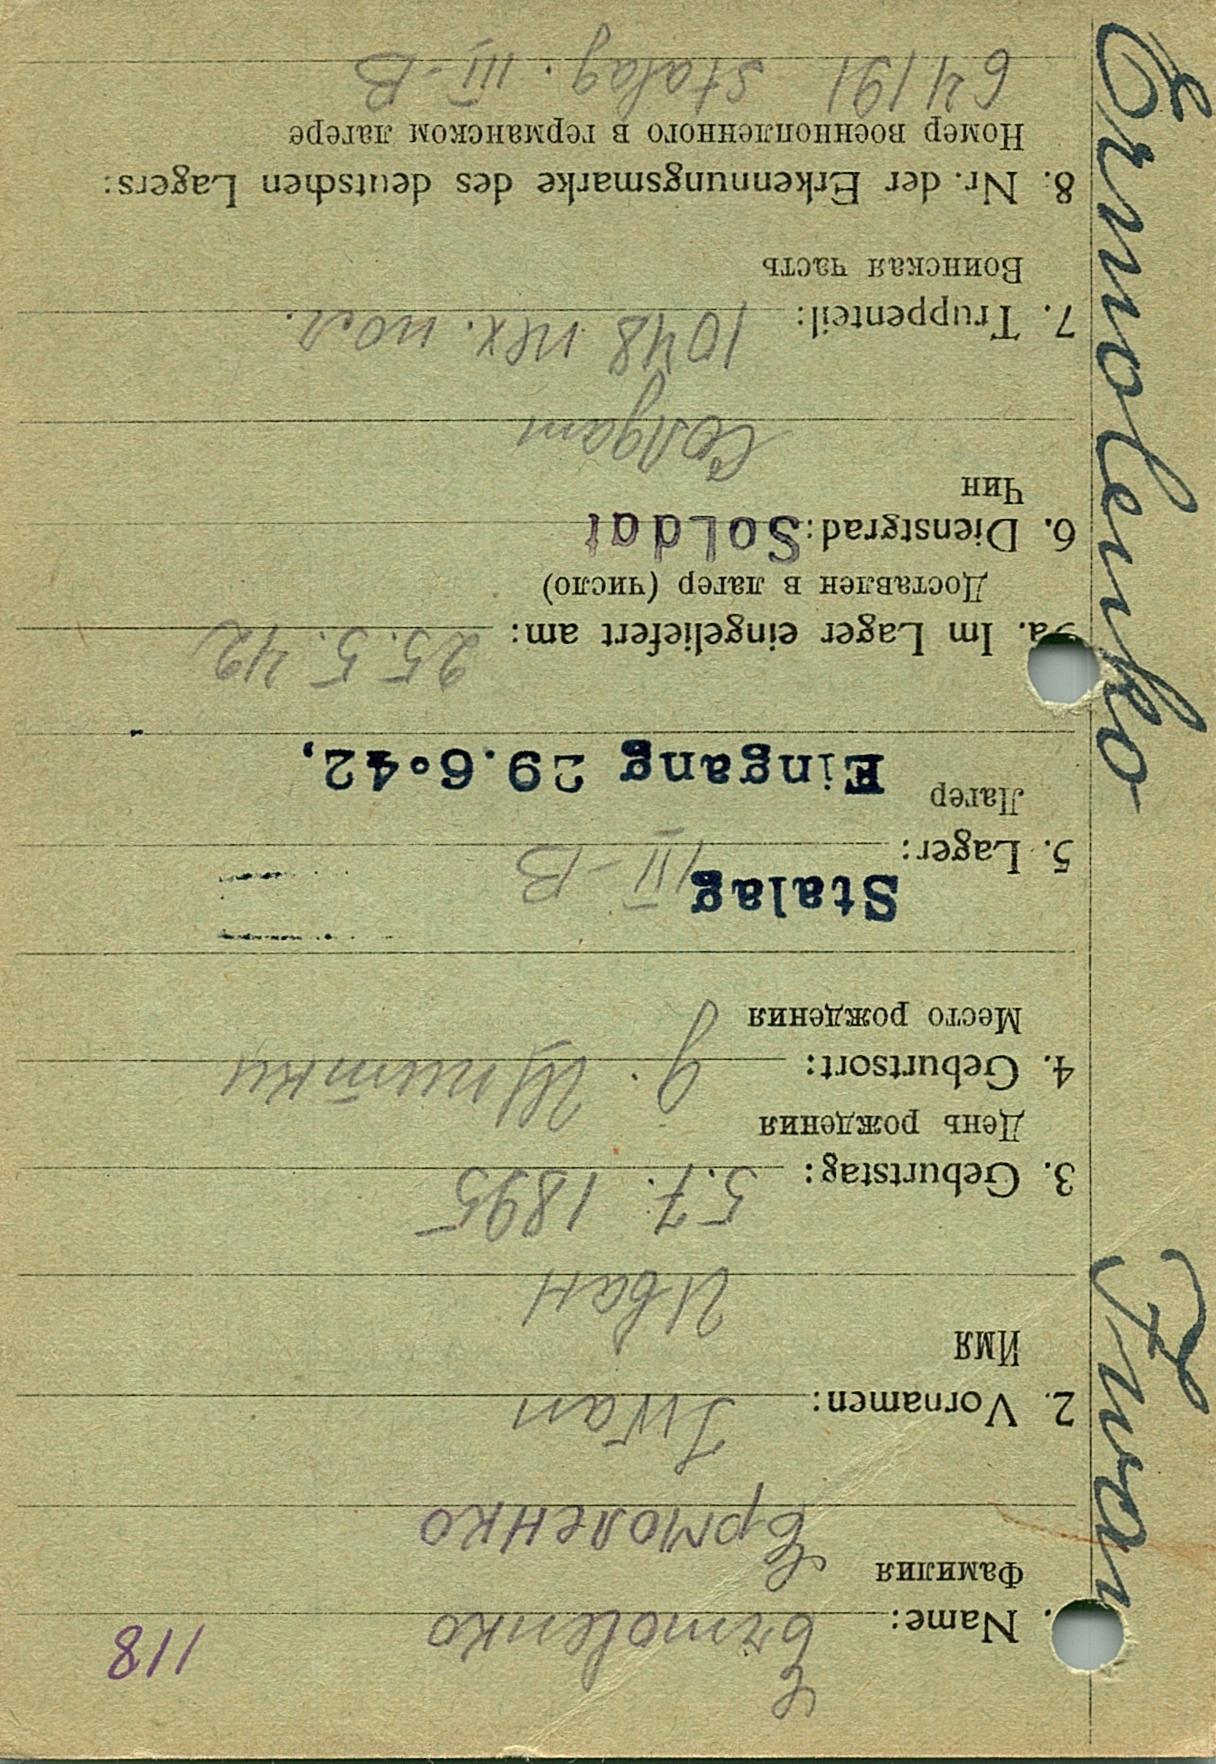 118
1. Name: Ermolenko
Фамилия Ермоленко
2. Vornamen: Iwan
Имя
Иван
3. Geburtstag: 5.7.1895
День рождения
4. Geburtsort: д.
Место рождения
Stalag
5. Lager: III-B
Лагер
Eingang 29.6.42.
5a. Im Lager eingeliefert am: 25.5.42
Доставлен в лагер (число)
6. Dienstgrad: Soldat
Чин
Солдат
7. Truppenteil: 1048
Воинская часть
8. Nr. der Erkennungsmarke des deutschen Lagers:
Номер военнопленного в германском лагере
64191 Stalag. III-B
Ermolenko Iwan